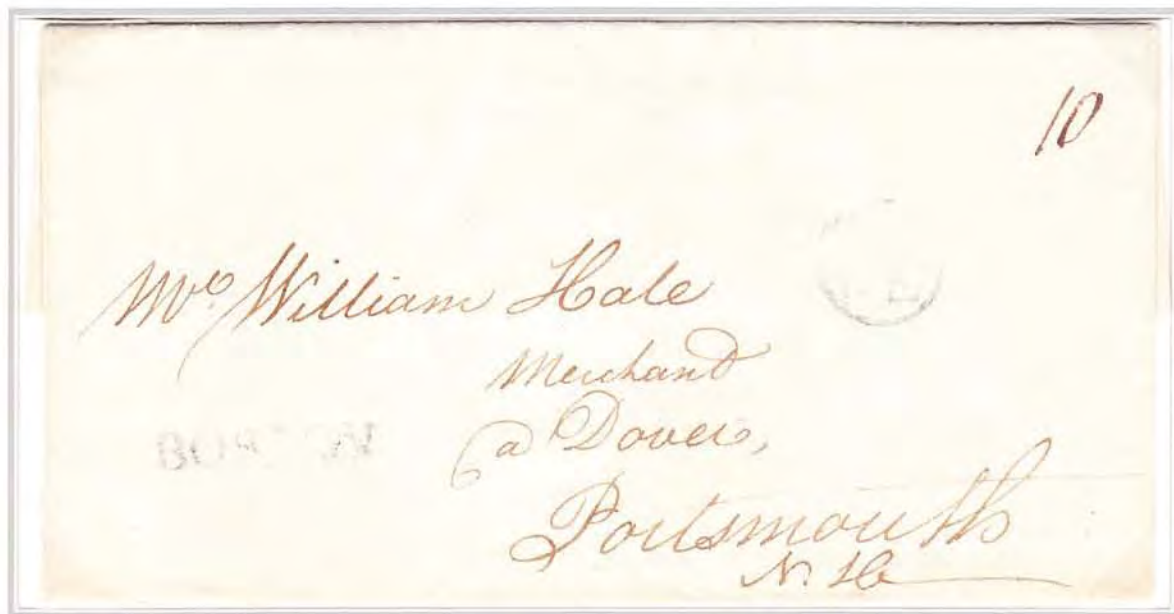 10
Mr. William Hale
Merchand
a Dover,
Portsmouth
N. H